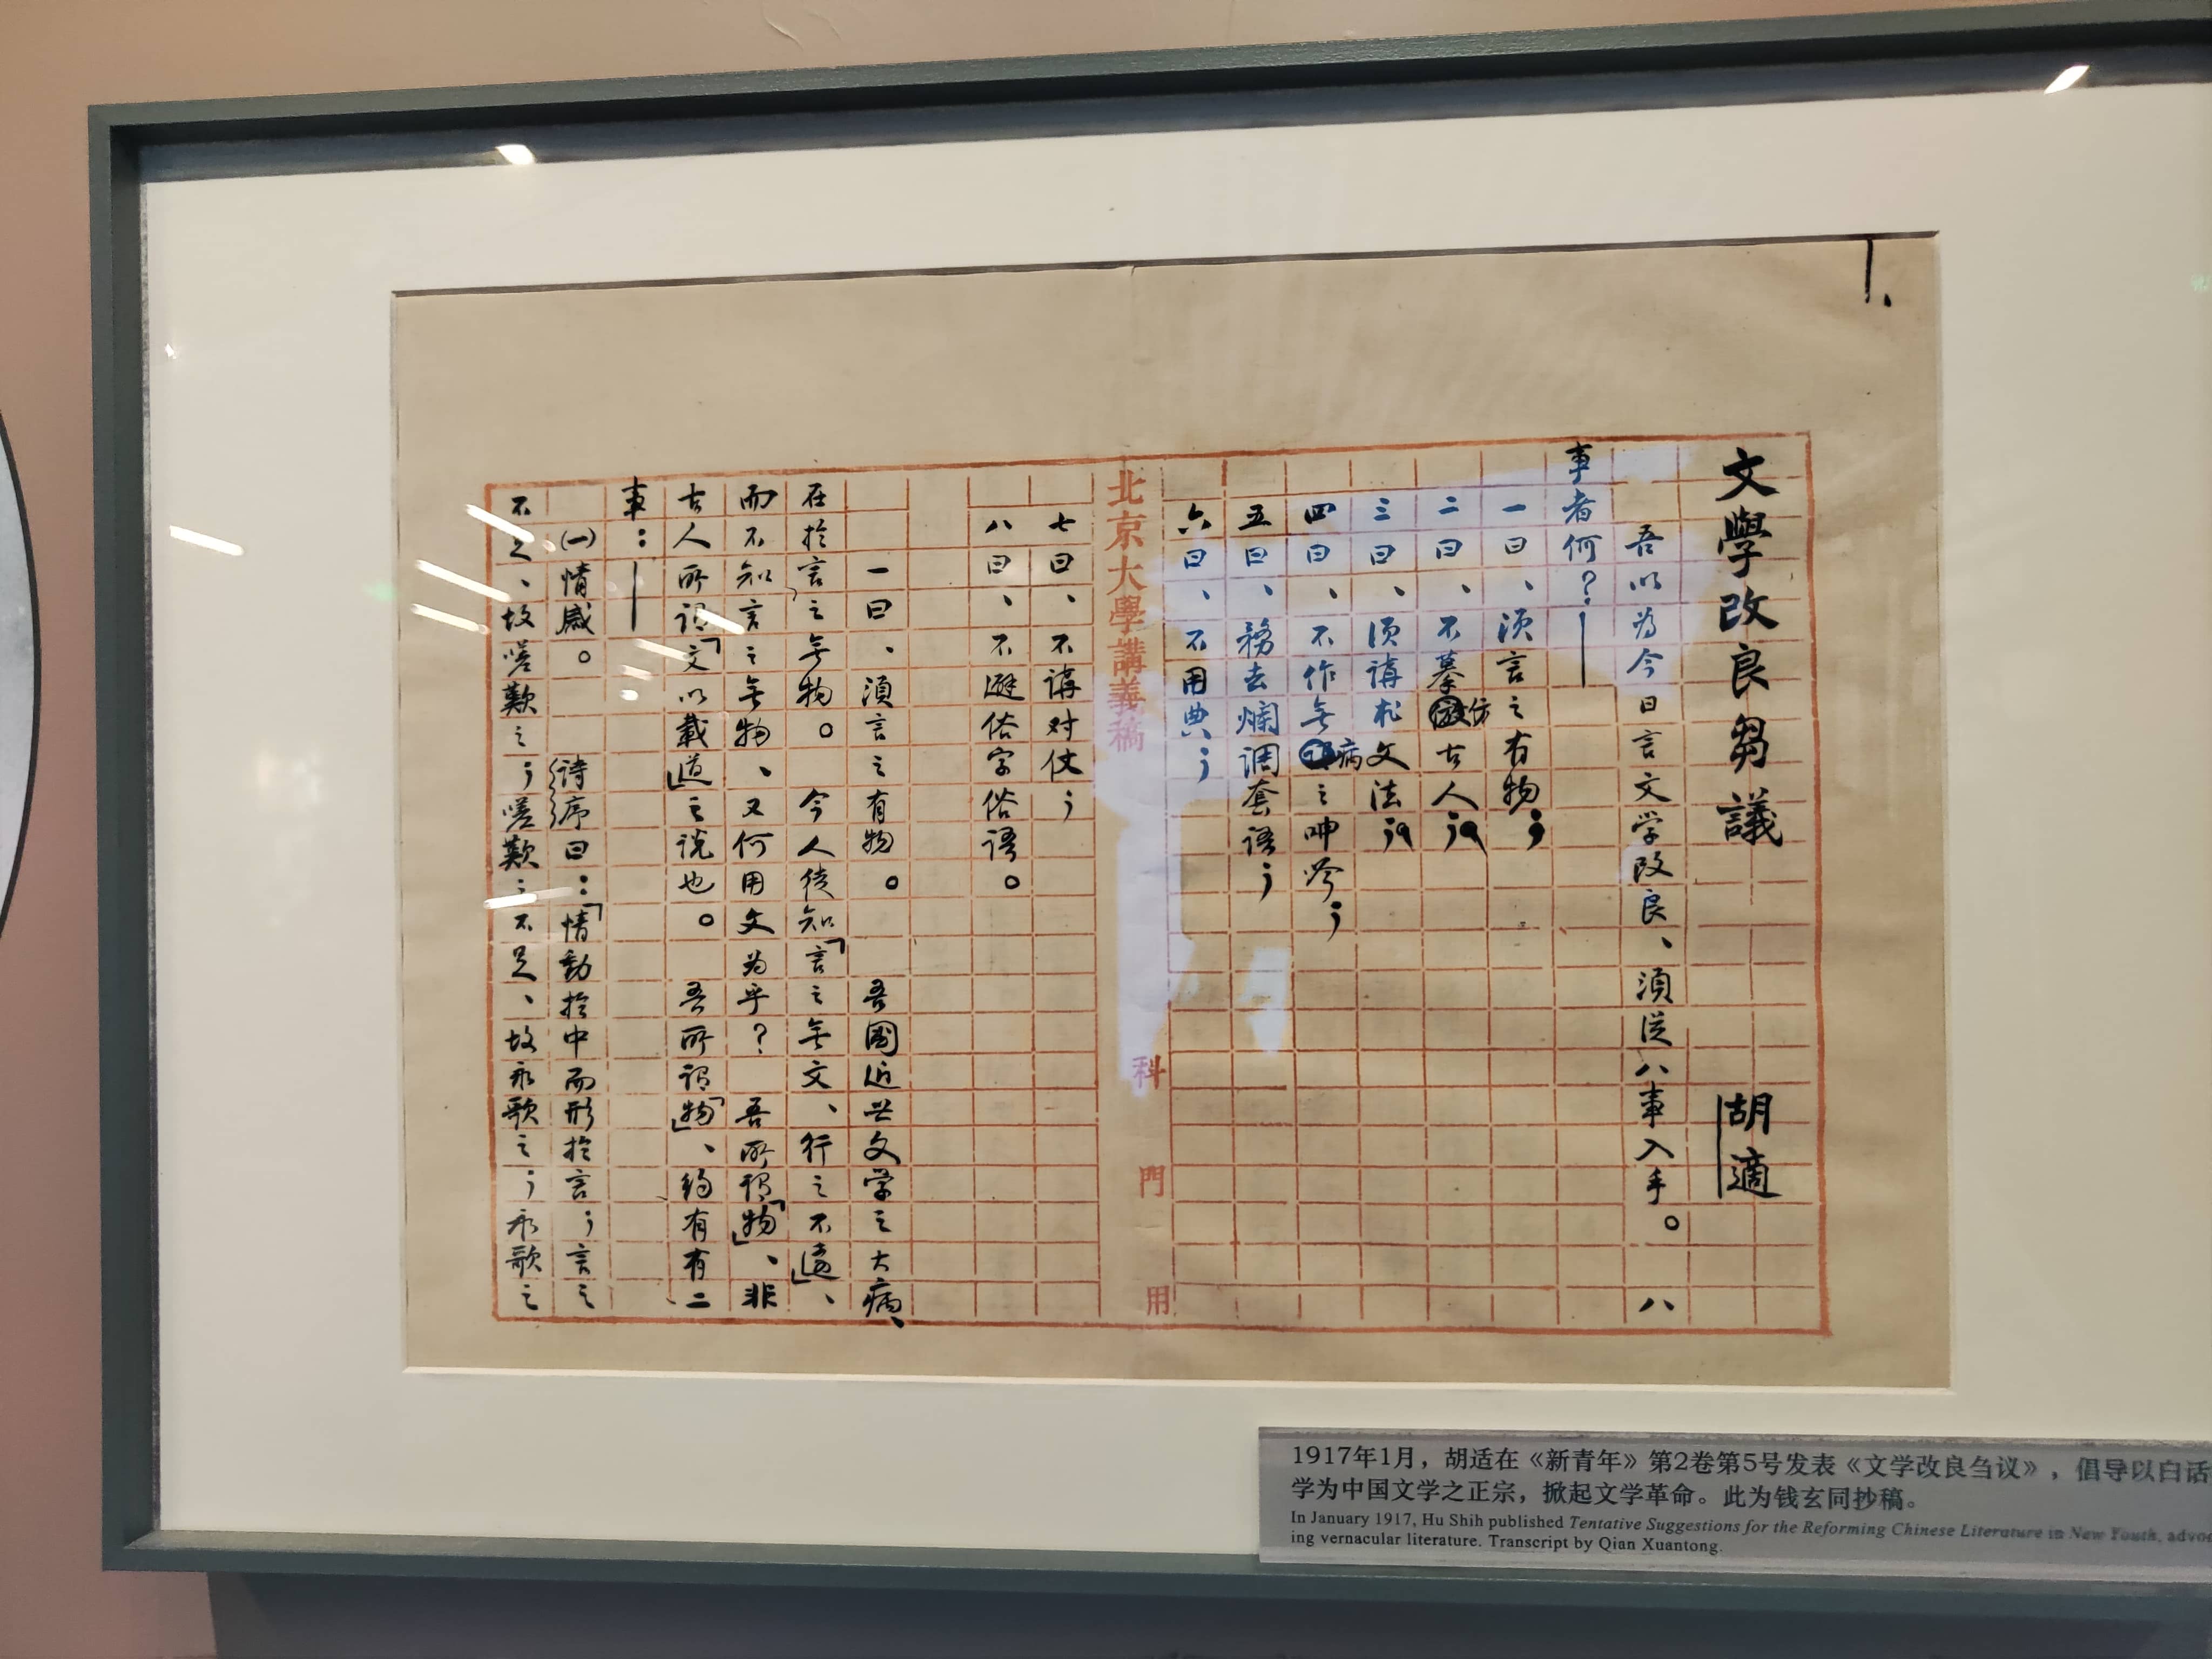 1、
文學改良芻議 胡適
吾以为今日言文学改良、須從八事入手。八
事者何？——
一曰、須言之有物；
二曰、不摹仿古人；
三曰、須講求文法；
四曰、不作无病之呻吟；
五曰、務去爛調套语；
六曰、不用典；
北京大學講義稿 科 門 用
七曰、不講对仗；
八曰、不避俗字俗语。
一曰、須言之有物。 吾國近世文学之大病、
在於言之无物。 今人徒知「言之无文、行之不遠」、
而不知言之无物、又何用文为乎？ 吾所謂「物」、非
古人所謂「文以載道」之说也。 吾所謂「物」、約有有二
事：——
(一)情感。 诗序曰：「情動於中而形於言；言之
不足、故嗟歎之；嗟歎之不足、故永歌之；永歌之
1917年1月，胡适在《新青年》第2卷第5号发表《文学改良刍议》，倡导以白话
学为中国文学之正宗，掀起文学革命。此为钱玄同抄稿。
In January 1917, Hu Shih published Tentative Suggestions for the Reforming Chinese Literature in New Youth, advoc
ing vernacular literature. Transcript by Qian Xuantong.